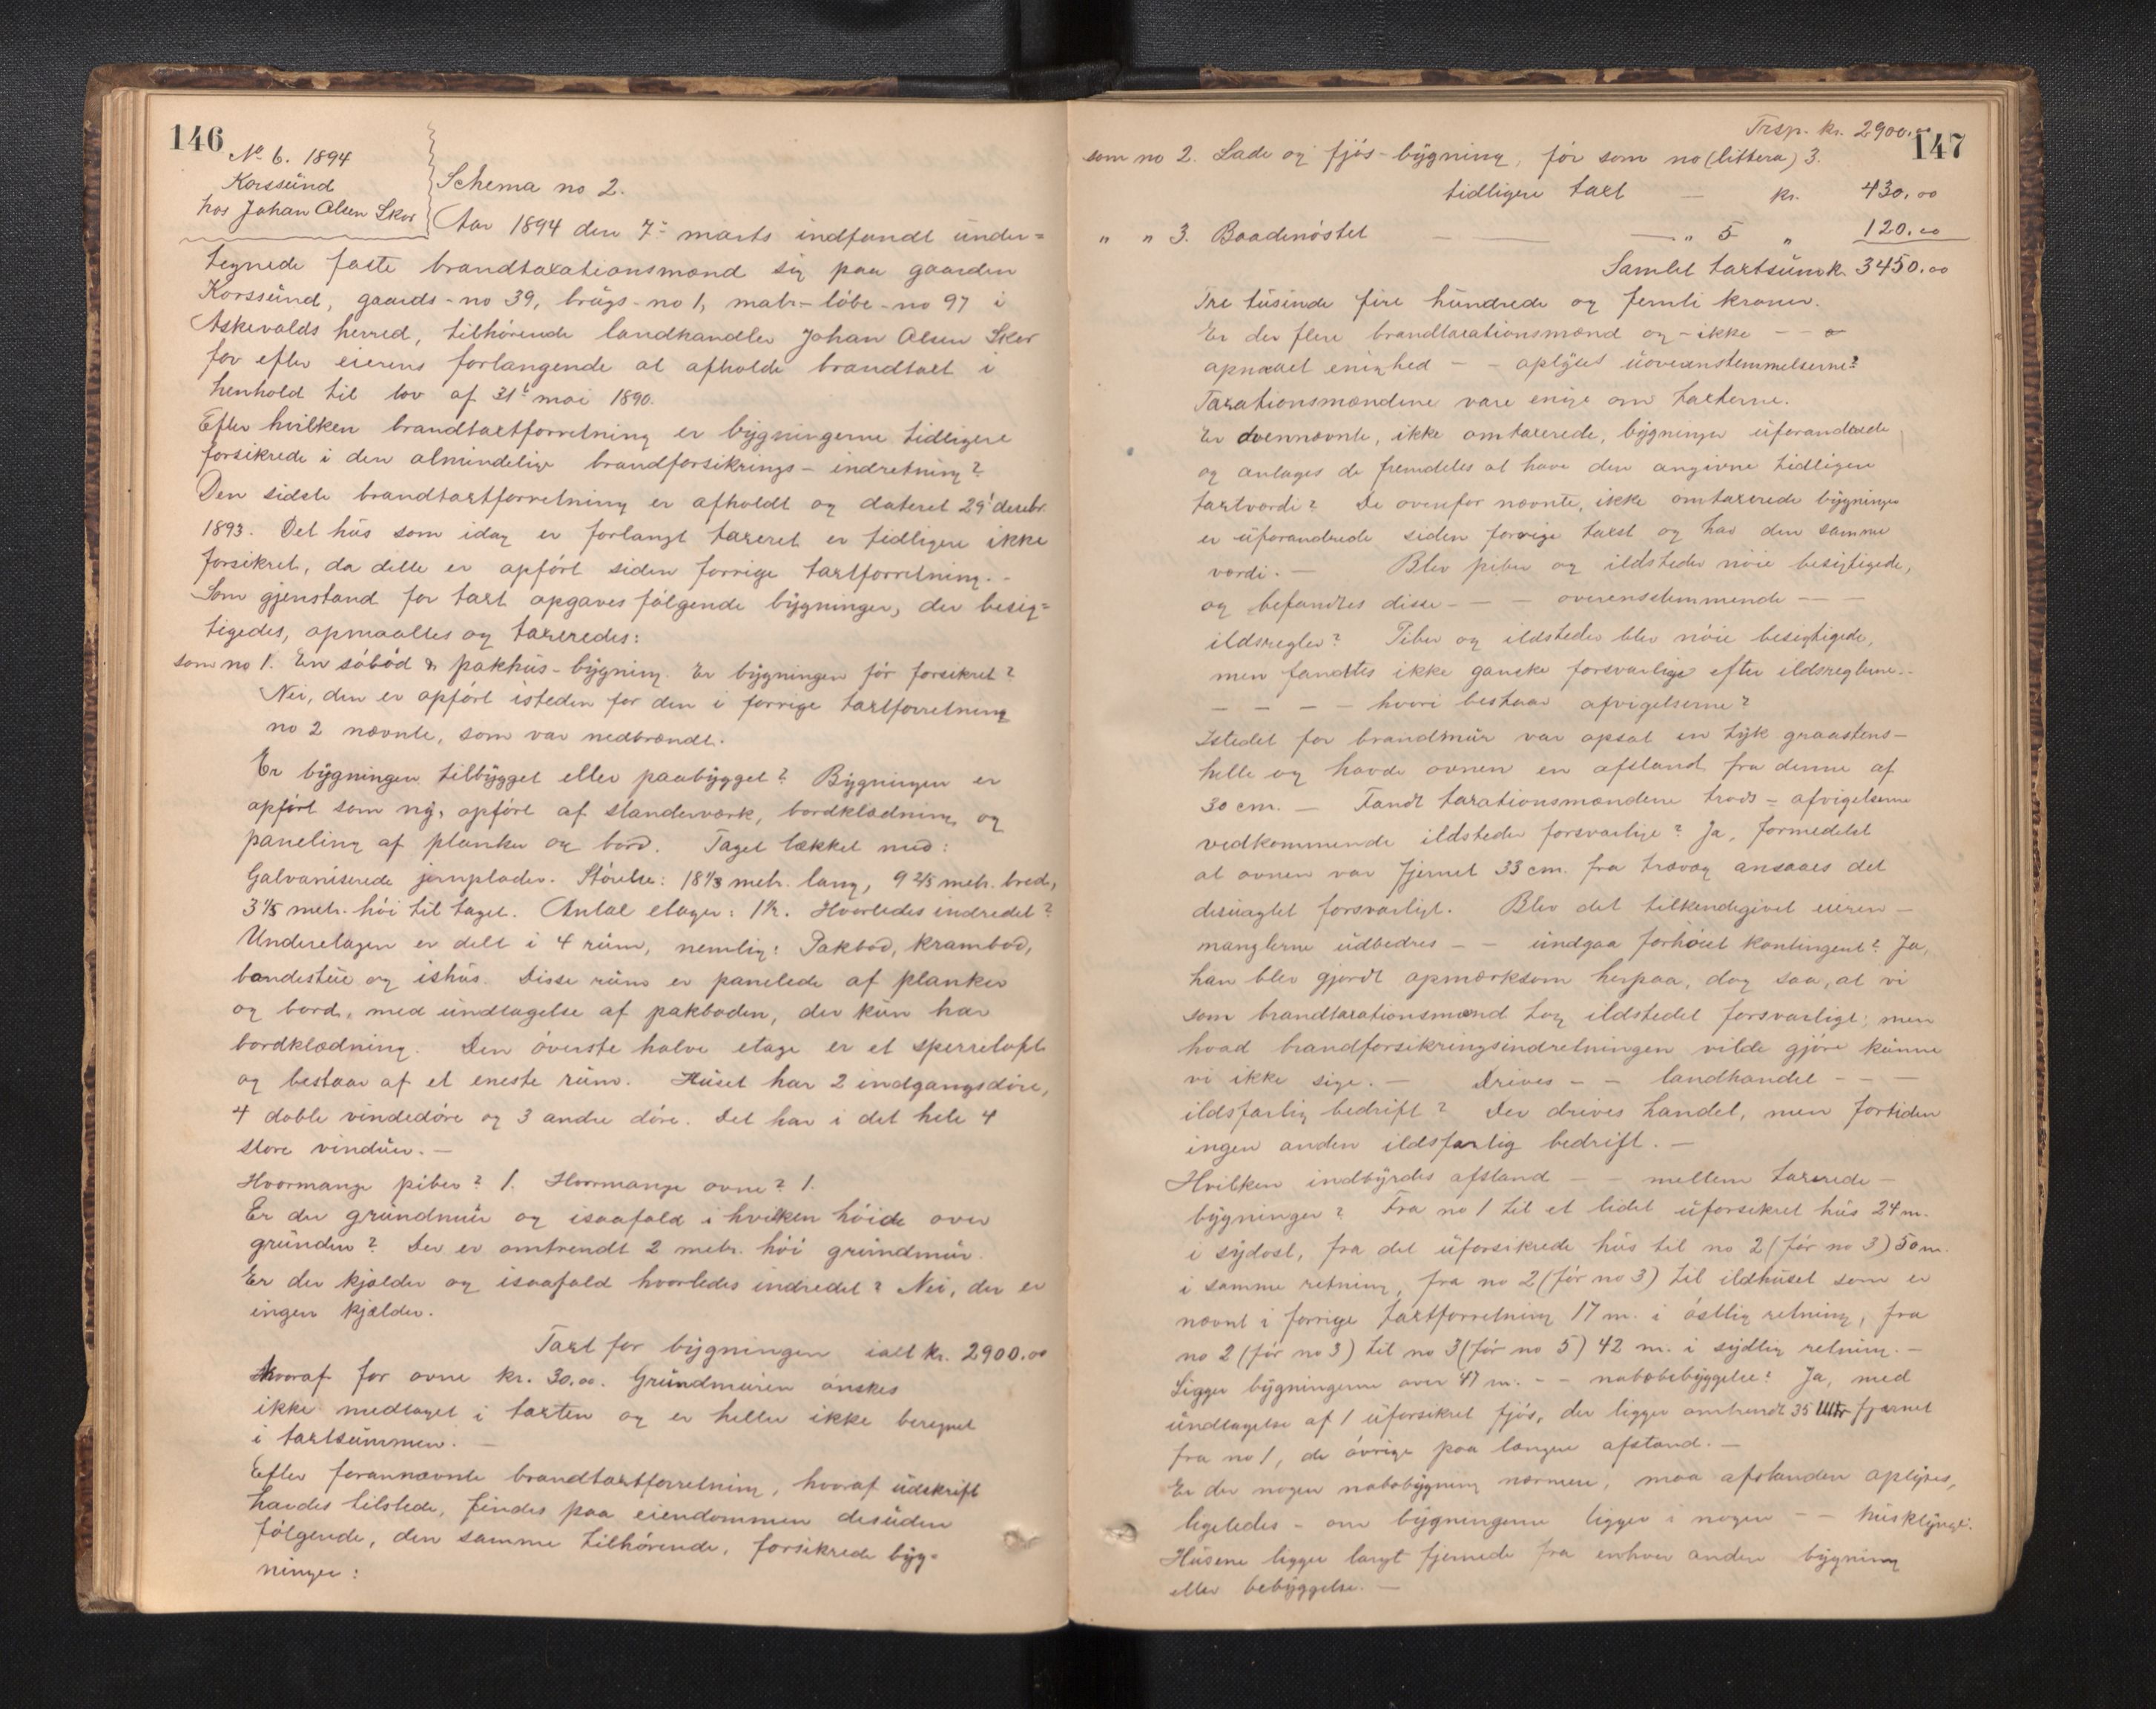 146
No 6. 1894
Korssund
hos Johan Olsen Sker
Schema no 2.
Aar 1894 den 7de marts indfandt under=
tegnede faste brandtaxationsmænd sig paa gaarden
Korssund, gaards-no 39, brugs-no 1, matr-løbe-no 97 i
Askevolds herred, tilhørende landhandler Johan Olsen Sker
for efter eierens forlangende at afholde brandtaxt i
henhold til lov af 31te mai 1890.
Efter hvilken brandtaxtforretning er bygningerne tidligere
forsikrede i den almindelige brandforsikrings-indretning?
Den sidste brandtaxtforretning er afholdt og dateret 29de desebr.
1893. Det hus som idag er forlangt taxeret er tidligere ikke
forsikret, da dette er opført siden forrige taxtforretning. -
Som gjenstand for taxt opgaves følgende bygninger, der besig=
tigedes, opmaaltes og taxeredes:
som no 1. En søbod & pakhus-bygning. Er bygningen før forsikret?
Nei, den er opført isteden for den i forrige taxtforretning
no 2 nævnte, som var nedbrændt.
Er bygningen tilbygget eller paabygget? Bygningen er
opført som ny, opført af standerværk, bordklædning og
paneling af planker og bord. Taget tækket med:
Galvaniserede jernplader. Størelse: 18 1/3 metr. lang, 9 2/5 metr. bred,
3 1/5 metr. høi til taget. Antal etager: 1 1/2. Hvorledes indredet?
Underetagen er delt i 4 rum, nemlig: Pakbod, krambod,
bondestue og ishus. Disse rum er panelede af planker
og bord, med undtagelse af pakboden, der kun har
bordklædning. Den øverste halve etage er et sperreloft
og bestaar af et eneste rum. Huset har 2 indgangsdøre,
4 doble vindedøre og 3 andre døre. Det har i det hele 4
store vinduer. -
Hvormange piber? 1. Hvormange ovne? 1.
Er der grundmur og isaafald i hvilken høide over
grunden? Der er omtrendt 2 metr. høi grundmur.
Er der kjælder og isaafald hvorledes indredet? Nei, der er
ingen kjælder.
Taxt for bygningen ialt kr. 2900.00
hvoraf for ovne kr. 30.00. Grundmuren ønskes
ikke medtaget i taxten og er heller ikke beregnet
i taxtsummen. -
Efter forannævnte brandtaxtforretning, hvoraf udskrift
havdes tilstede, findes paa eiendommen desuden
følgende, den samme tilhørende, forsikrede byg=
ninger:
147
Trsp. kr. 2900.00
som no 2. Lade og fjøs-bygning, før som no (littera) 3.
tidligere taxt — kr. 430.00
" " 3. Baadenøstet — — — " 5 " 120.00
Samlet taxtsum kr. 3450.00
Tre tusinde fire hundrede og femti kroner.
Er der flere brandtaxationsmænd og - ikke - -
opnaaet enighed - - oplyses uoverenstemmelserne?
Taxationsmændene vare enige om taxterne.
Er ovennævnte, ikke omtaxerede, bygninger uforandrede
og antages de fremdeles at have den angivne tidligere
taxtværdi? De ovenfor nævnte, ikke omtaxerede bygninger
er uforandrede siden forrige taxt og har den samme
værdi. - Blev piber og ildsteder nøie besigtigede,
og befandtes disse - - - overenstemmende - -
ildsregler? Piber og ildsteder blev nøie besigtigede,
men fandtes ikke ganske forsvarlige efter ildsreglerne. -
- - - - hvori bestaar afvigelserne?
Istedet for brandmur var opsat en tyk graastens-
helle og havde ovnen en afstand fra denne af
30 cm. - Fandt taxationsmændene trods - afvigelserne
vedkommende ildsteder forsvarlige? Ja, formedelst
at ovnen var fjernet 33 cm. fra trævæg ansaaes det
desuagtet forsvarligt. Blev det tilkendegivet eieren -
manglerne udbedres - - undgaa forhøiet kontingent? Ja,
han blev gjordt opmærksom herpaa, dog saa, at vi
som brandtaxationsmænd tog ildstedet forsvarligt; men
hvad brandforsikringsindretningen vilde gjøre kunne
vi ikke sige. - Drives - - landhandel - - -
ildsfarlig bedrift? Der drives handel, men fortiden
ingen anden ildsfarlig bedrift. -
Hvilken indbyrdes afstand - - mellem taxerede -
bygninger? Fra no 1 til et lidet uforsikret hus 24 m.
i sydost, fra det uforsikrede hus til no 2 (før no 3) 50 m.
i samme retning, fra no 2 (før no 3) til ildhuset som er
nævnt i forrige taxtforretning 17 m. i østlig retning, fra
no 2 (før no 3) til no 3 (før no 5) 42 m. i sydlig retning. -
Ligger bygningerne over 47 m. - - nabobebyggelse? Ja, med
undtagelse af 1 uforsikret fjøs, der ligger omtrendt 35 Mtr fjernet
fra no 1, de øvrige paa længere afstand. -
Er der nogen nabobygning nærmere, maa afstanden oplyses,
ligeledes - om bygningerne ligger i nogen - - husklynge.
Husene ligger langt fjernede fra enhver anden bygning
eller bebyggelse. -